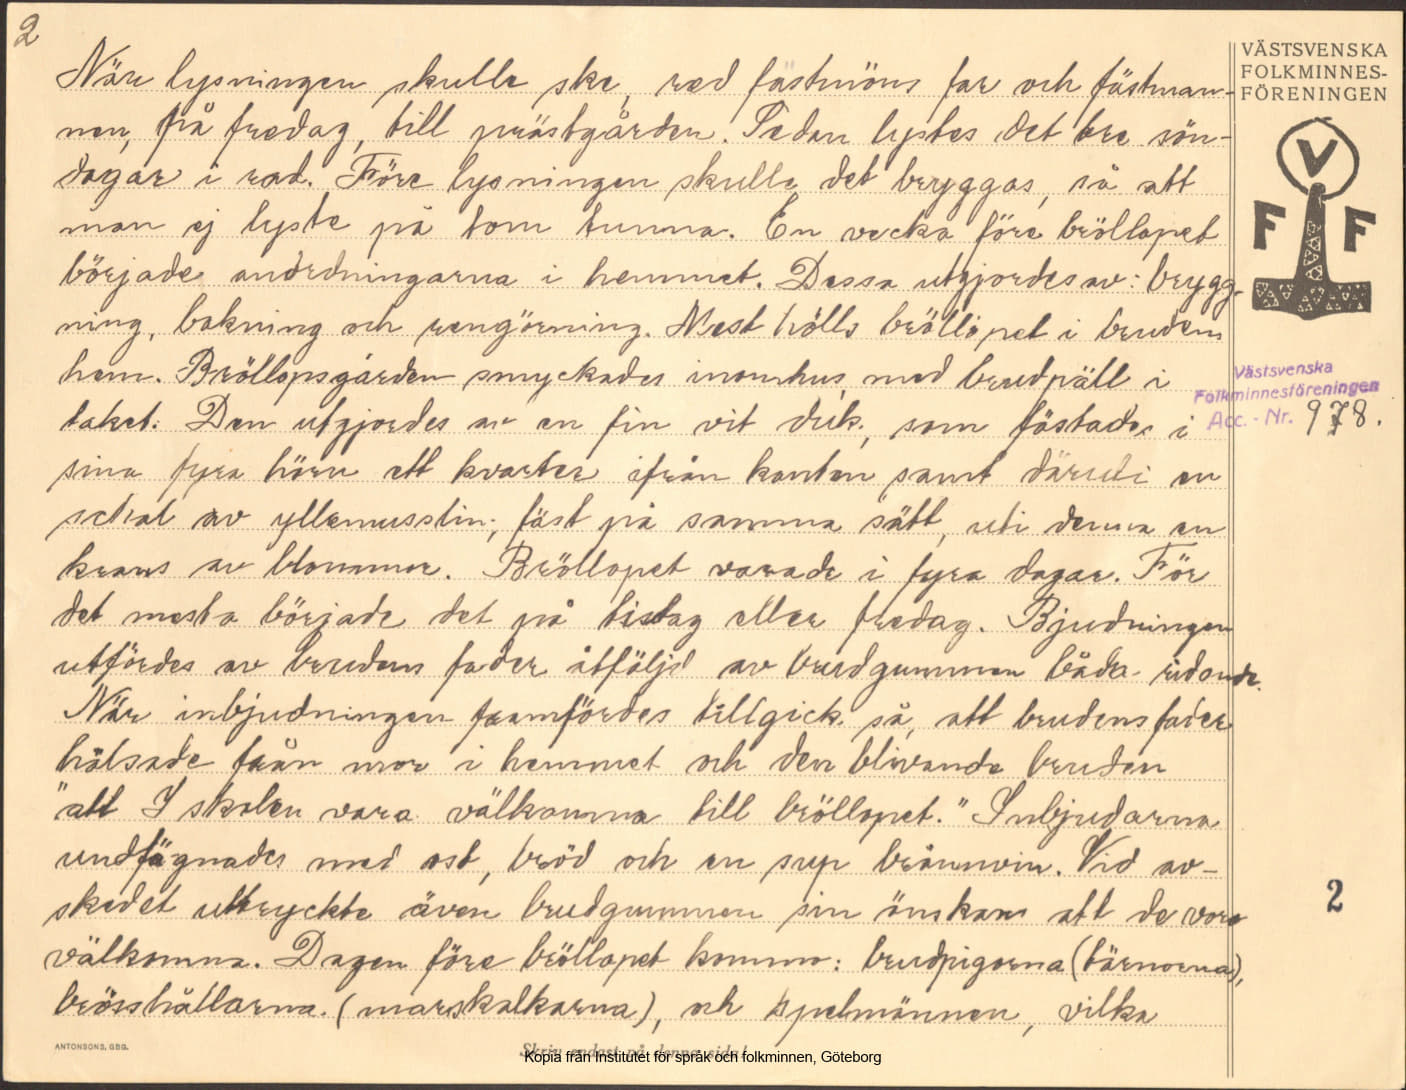 2
När lysningen skulle ske, red fästmöns far och fästman-
nen, på fredag, till prästgården. Sedan lystes det tre sön-
dagar i rad. Före lysningen skulle det bryggas, så att
man ej lyste på tom tunna. En vecka före bröllopet
började anordningarna i hemmet. Dessa utgjordes av: brygg-
ning, bakning och rengörning. Mest hölls bröllopet i brudens
hem. Bröllopsgården smyckades inomhus med brudpäll i
taket. Den utgjordes av en fin vit duk, som fästades i
sina fyra hörn ett kvarter ifrån kanten samt däruti en
schal av yllemusslin, fäst på samma sätt, uti denna en
krans av blommor. Bröllopet varade i fyra dagar. För
det mesta började det på tisdag eller fredag. Bjudningen
utfördes av brudens fader åtföljd av brudgummen båda ridande.
När inbjudningen framfördes tillgick så, att brudens fader
hälsade från mor i hemmet och den blivande bruden
"att I skolen vara välkomna till bröllopet." Inbjudarna
undfägnades med ost, bröd och en sup brännvin. Vid av-
skedet uttryckte även brudgummen sin önskan att de vore
välkomna. Dagen före bröllopet kommo: brudpigorna (tärnorna),
brösshållarna (marskalkarna), och spelmännen, vilka
VÄSTSVENSKA
FOLKMINNES-
FÖRENINGEN
V
F F
Västsvenska
Folkminnesföreningen
Acc. - Nr. 978.
2
ANTONSONS, GBG.
Skriv endast på denna sida!
Kopia från Institutet för språk och folkminnen, Göteborg